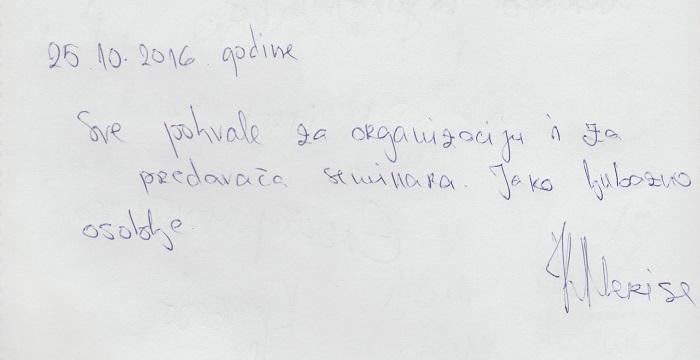 25.10.2016. godine
Sve pohvale za organizaciju i za
predavača seminara. Jako ljubazno
osoblje